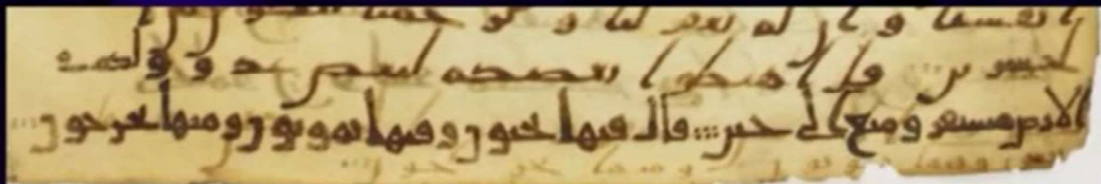 انفسنا و ان لم تغفر لنا و تر حمنا
لخسرين قل اهبطوا بعضكم لبعض عدو ولكم في
الارض مستقر ومتع الى حين قال فيها تحيون وفيها تموتون ومنها تخرجون